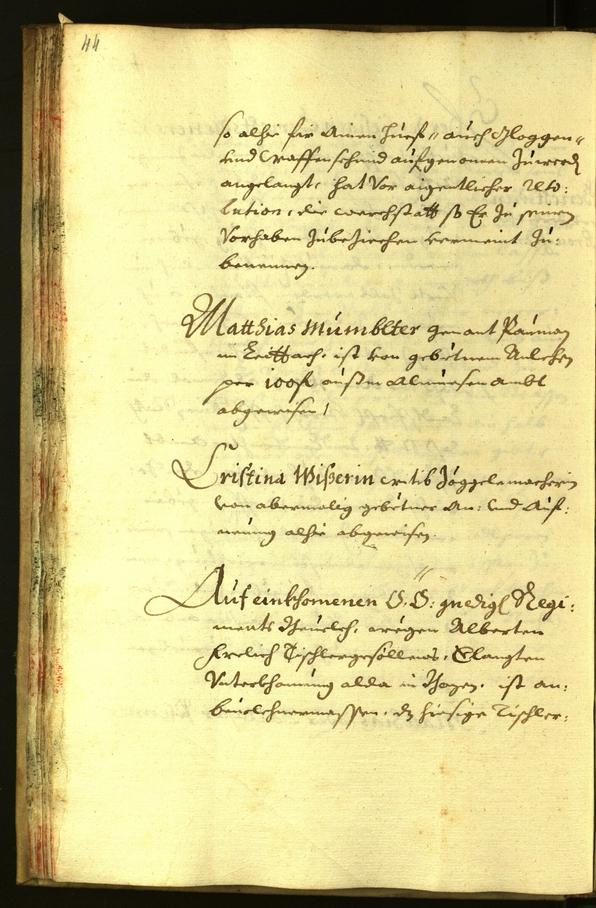 44
so alhie für ainen Huef: auch Gloggen=
und Waffenschmid aufgenomen zuwerden
angelangt, hat vor aigentlicher Reso:
lution, die werchstatt so Er zu seinem
Vorhaben zubeziechen vermeint zu:
benennen.
Matthias Mumblter genant Pauman
im Leittach, ist von gebetnem Anlehen
per 100 fl außm Almuesen ambt
abgewisen.
Cristina Wißerin
von abermalig gebetner An: und Auf:
nemung alhie abgewisen.
Auf einkhomenen O.Ö: gnedig Regi:
ments Bevelch, wegen Alberten
Frelich Tischlergesöllens, Erlangten
Unterkhomung alda in Bozen, ist an:
bevolchnermassen, dz hiesige Tischler: